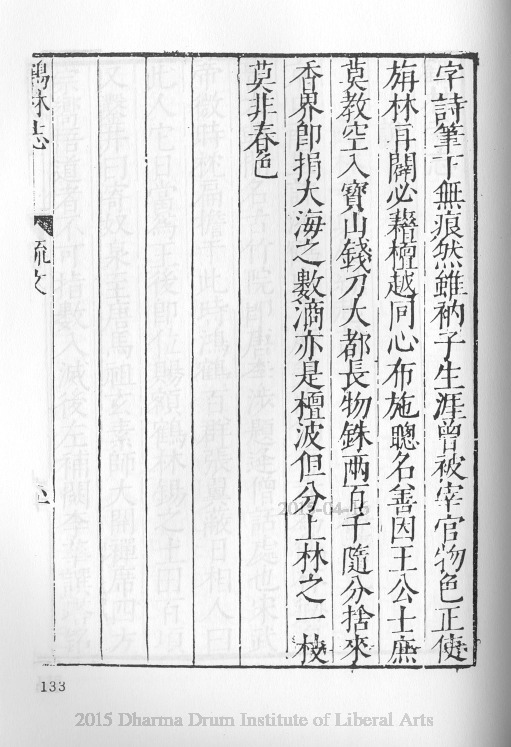 字詩筆下無痕然雖衲子生涯曾被宰官物色正使
旃林再闢必藉檀越同心布施聰名善因王公士庶
莫教空入寶山錢刀大都長物銖兩百千隨分捨來
香界卽捐大海之數滴亦是檀波但分上林之一枝
莫非春色
鶴林志
疏文
133
2015 Dharma Drum Institute of Liberal Arts